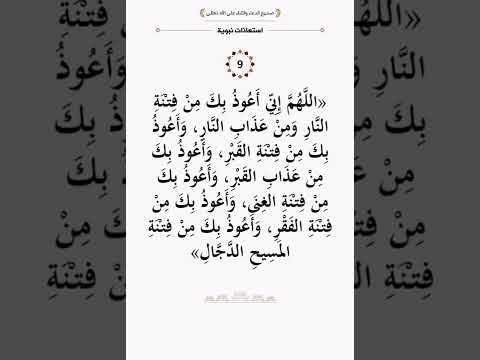 صحيح الدعاء والثناء على الله تعالى
استعاذات نبوية
9
«اللَّهُمَّ إِنِّي أَعُوذُ بِكَ مِنْ فِتْنَةِ
النَّارِ وَمِنْ عَذَابِ النَّارِ، وَأَعُوذُ
بِكَ مِنْ فِتْنَةِ القَبْرِ، وَأَعُوذُ بِكَ
مِنْ عَذَابِ القَبْرِ، وَأَعُوذُ بِكَ
مِنْ فِتْنَةِ الغِنَى، وَأَعُوذُ بِكَ مِنْ
فِتْنَةِ الفَقْرِ، وَأَعُوذُ بِكَ مِنْ فِتْنَةِ
المَسِيحِ الدَّجَّالِ»